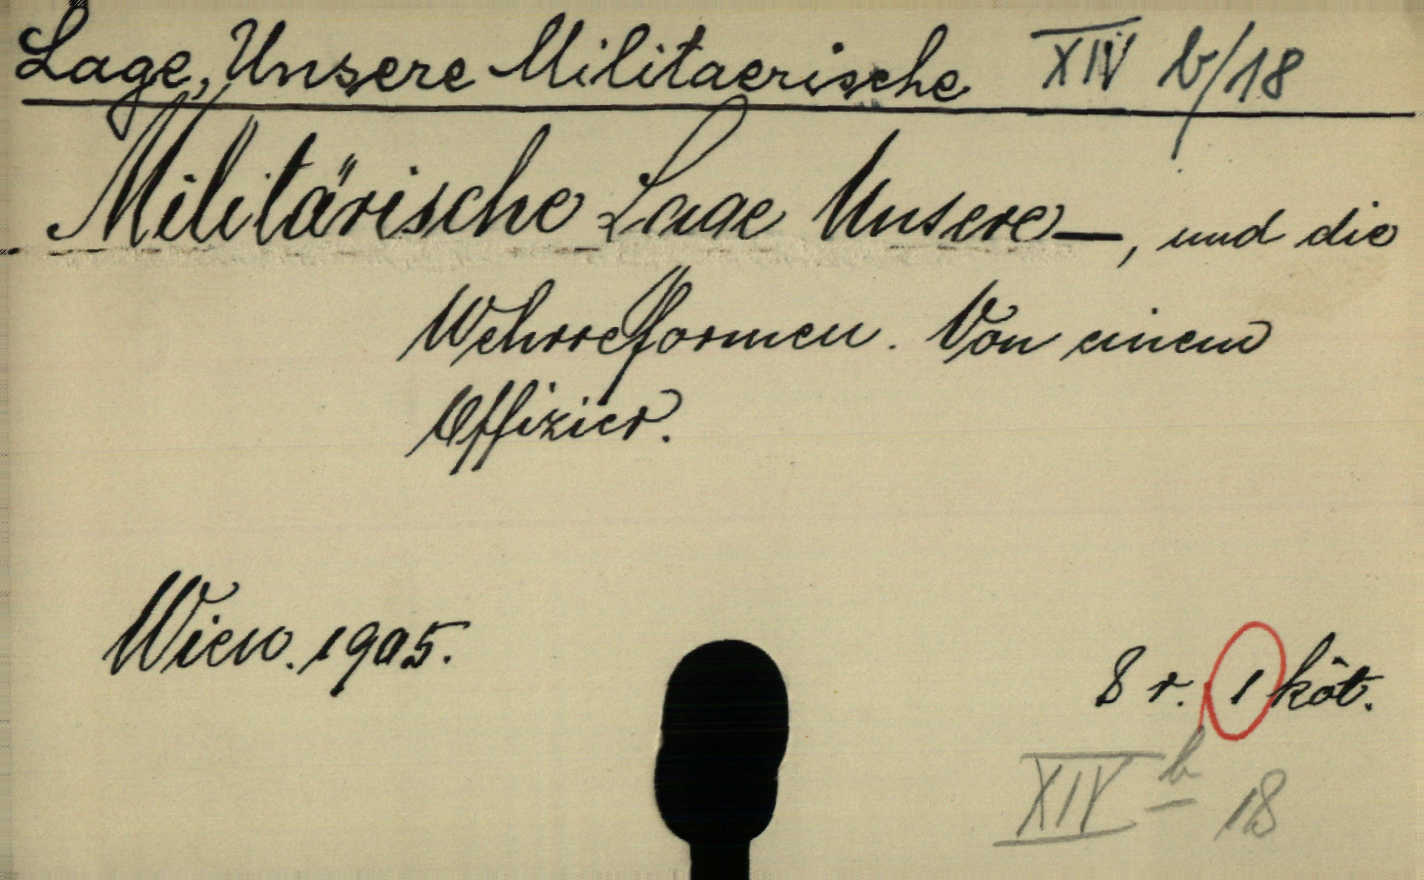 Lage, Unsere Militaerische XIV b/18
Militärische Lage Unsere —, und die
Wehrreformen. Von einem
Offizier.
Wien. 1905.
8 r. 1 köt.
XIV b 18